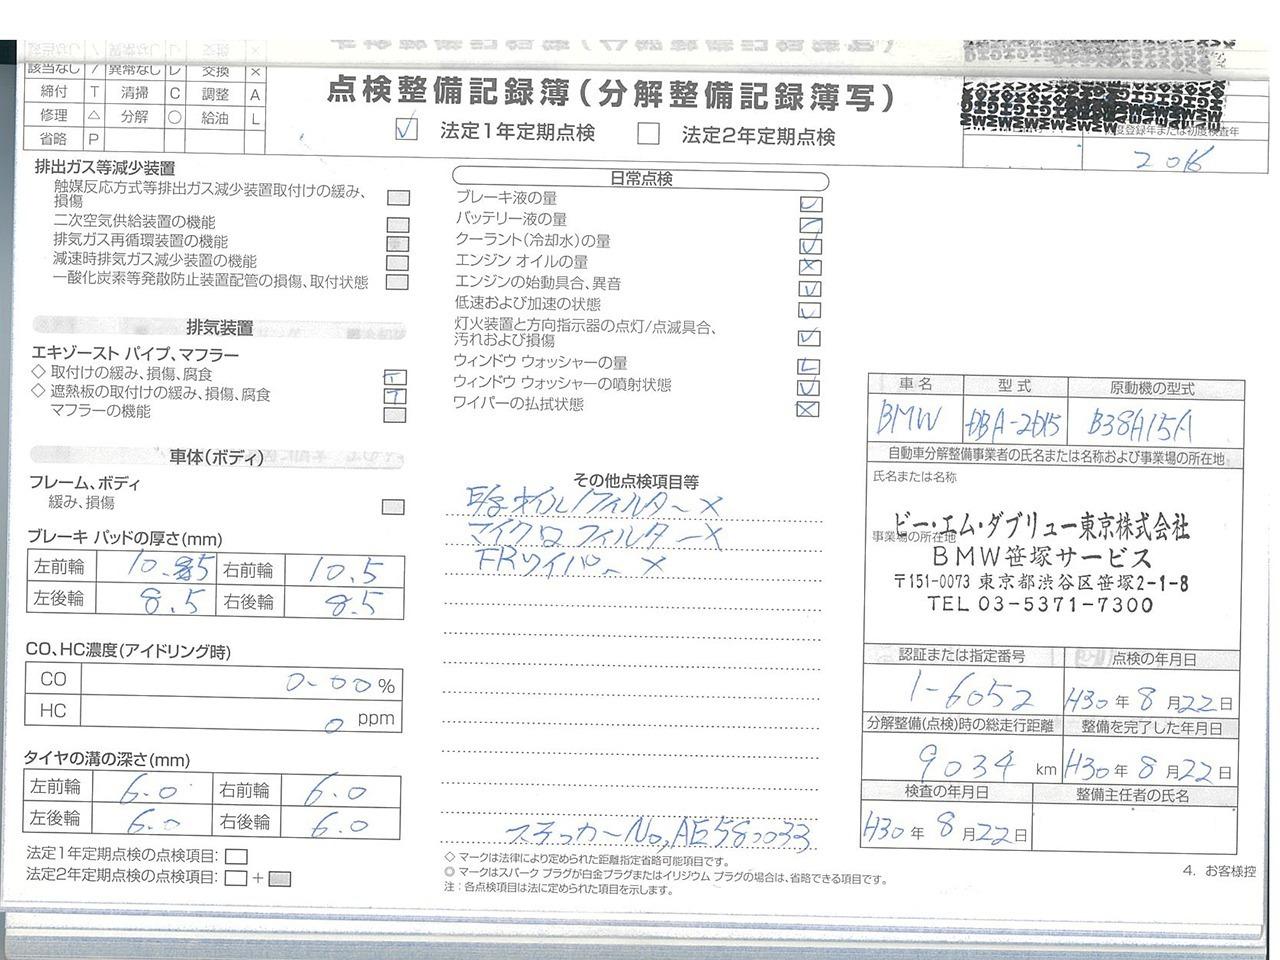 該当なし / 異常なし レ 交換 ×
締付 T 清掃 C 調整 A
修理 △ 分解 ○ 給油 L
省略 P
点検整備記録簿(分解整備記録簿写)
法定1年定期点検 法定2年定期点検
度登録年または初度検査年
2016
排出ガス等減少装置
触媒反応方式等排出ガス減少装置取付けの緩み、
損傷
二次空気供給装置の機能
排気ガス再循環装置の機能
減速時排気ガス減少装置の機能
一酸化炭素等発散防止装置配管の損傷、取付状態
排気装置
エキゾースト パイプ、マフラー
◇ 取付けの緩み、損傷、腐食 T
◇ 遮熱板の取付けの緩み、損傷、腐食 T
マフラーの機能
車体(ボディ)
フレーム、ボディ
緩み、損傷
ブレーキ パッドの厚さ(mm)
左前輪 右前輪 10.5
左後輪 8.5 右後輪 8.5
CO、HC濃度(アイドリング時)
CO 0.00 %
HC 0 ppm
タイヤの溝の深さ(mm)
左前輪 6.0 右前輪 6.0
左後輪 6.0 右後輪 6.0
法定1年定期点検の点検項目:
法定2年定期点検の点検項目: +
日常点検
ブレーキ液の量 レ
バッテリー液の量 /
クーラント(冷却水)の量 レ
エンジン オイルの量 ×
エンジンの始動具合、異音 レ
低速および加速の状態 レ
灯火装置と方向指示器の点灯/点滅具合、
汚れおよび損傷 レ
ウィンドウ ウォッシャーの量 L
ウィンドウ ウォッシャーの噴射状態 レ
ワイパーの払拭状態 ×
その他点検項目等
E/gオイル/フィルター ×
マイクロフィルター ×
FRワイパー ×
ステッカーNo,AE580033
◇ マークは法律により定められた距離指定省略可能項目です。
◎ マークはスパーク プラグが白金プラグまたはイリジウム プラグの場合は、省略できる項目です。
注:各点検項目は法に定められた項目を示します。
車名 型式 原動機の型式
BMW DBA-2D15 B38A15A
自動車分解整備事業者の氏名または名称および事業場の所在地
氏名または名称
ビー・エム・ダブリュー東京株式会社
事業場の所在地
BMW笹塚サービス
〒151-0073 東京都渋谷区笹塚2-1-8
TEL 03-5371-7300
認証または指定番号 点検の年月日
1-6052 H30年 8月22日
分解整備(点検)時の総走行距離 整備を完了した年月日
9034 km H30年 8月22日
検査の年月日 整備主任者の氏名
H30年 8月22日
4. お客様控